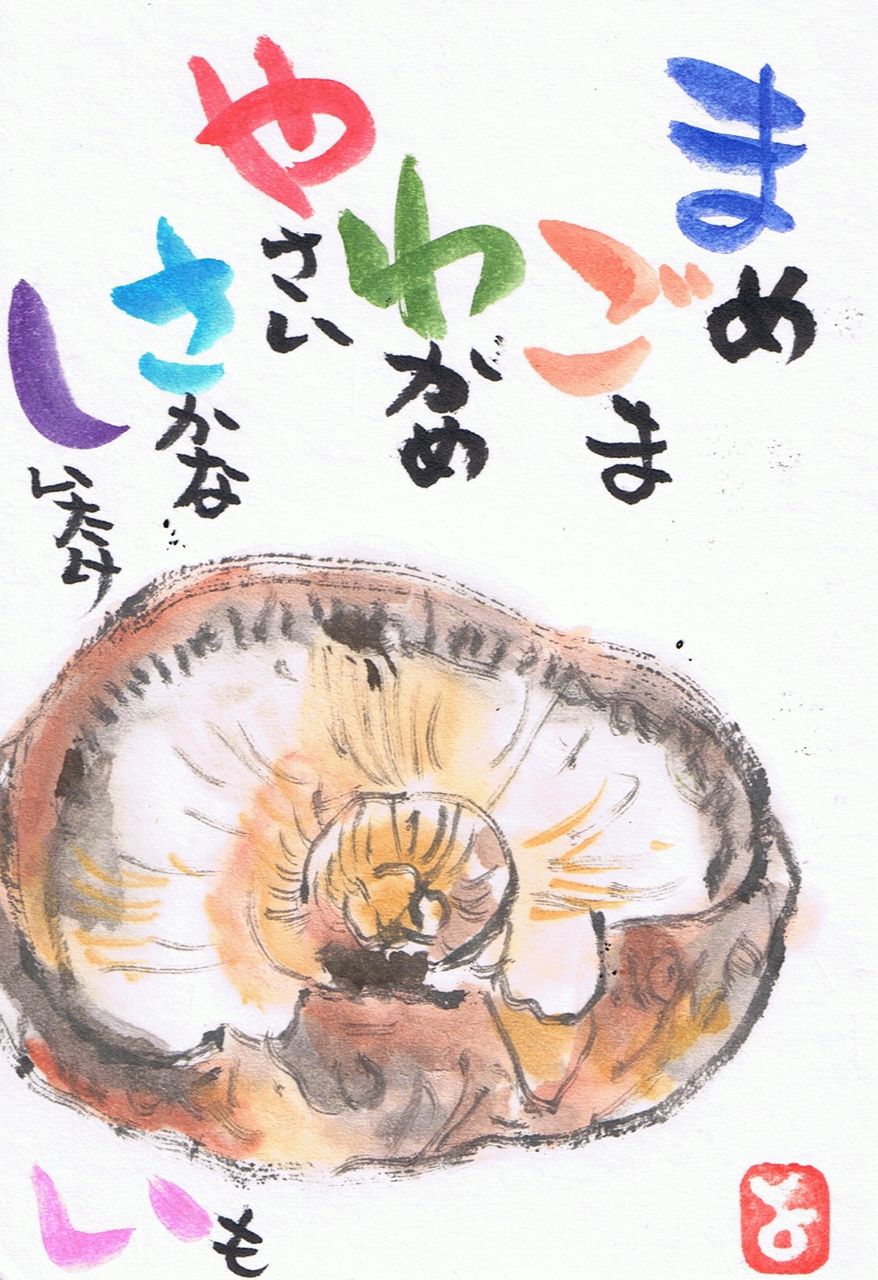 まめ
ごま
わかめ
やさい
さかな
しいたけ
いも
と